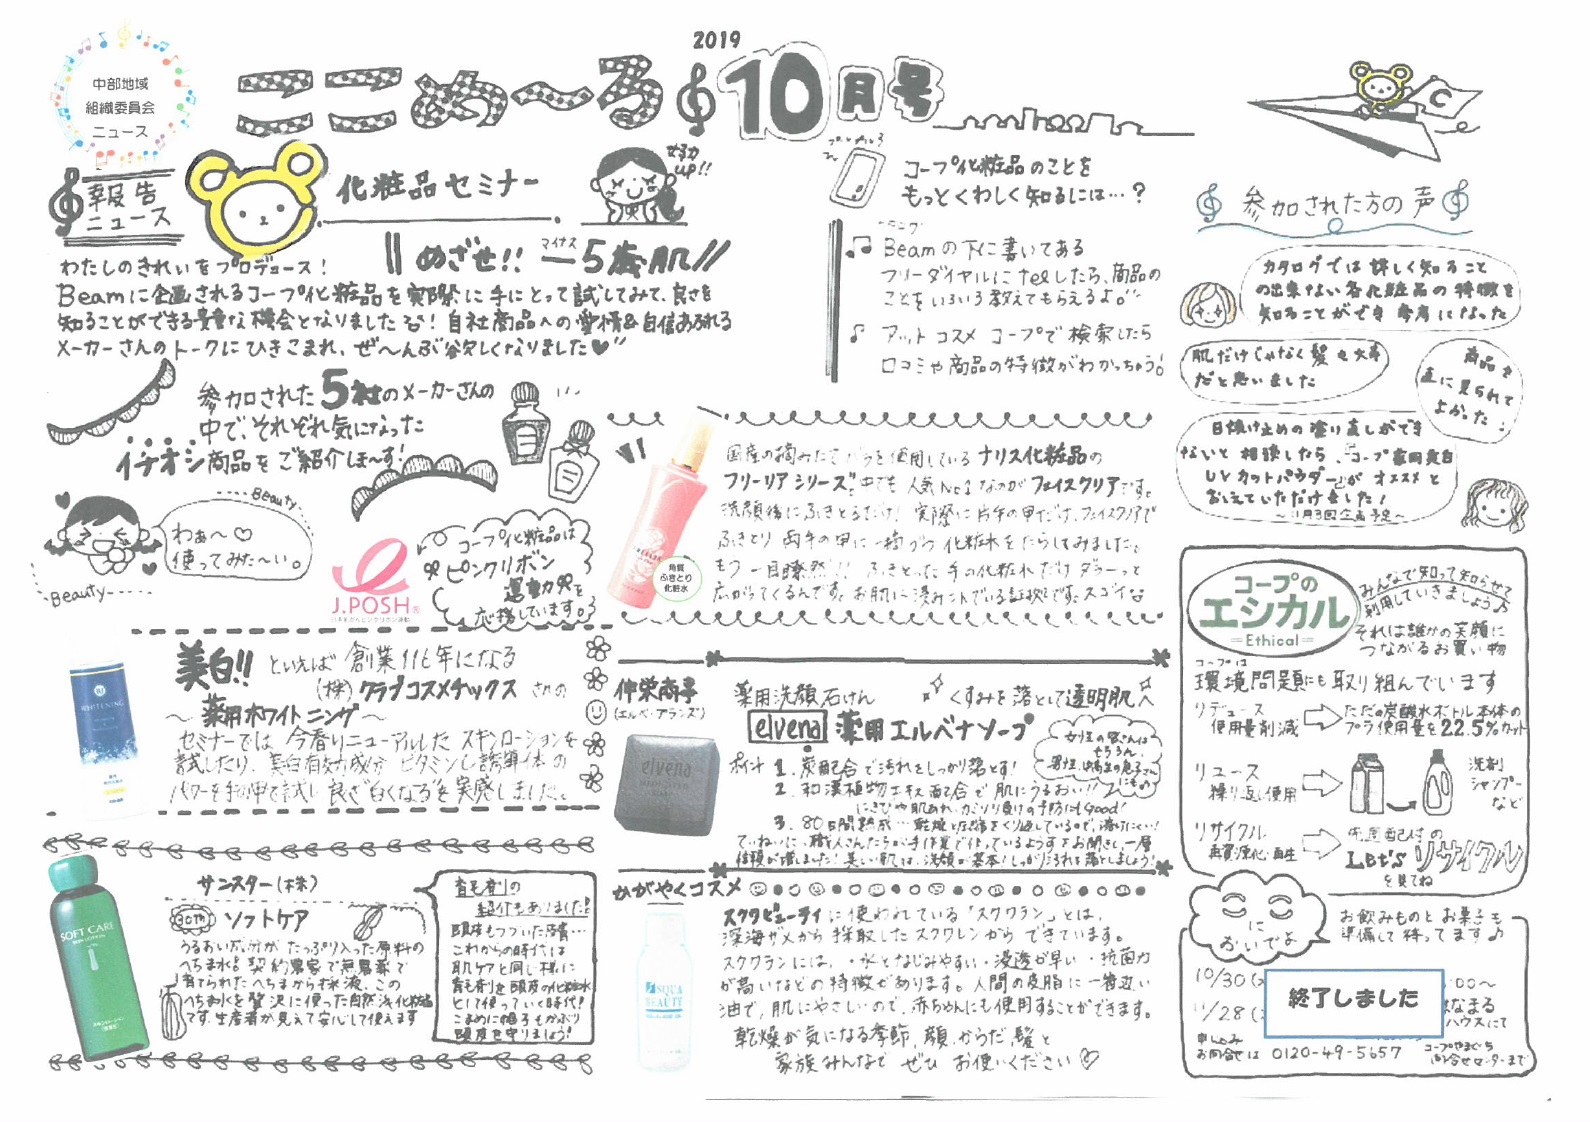 中部地域
組織委員会
ニュース
2019
ここめ〜る 10月号
報告
ニュース
化粧品セミナー
女子力
up!!
めざせ!! マイナス 5歳肌
わたしのきれいをプロデュース!
Beamに企画されるコープ化粧品を実際に手にとって試してみて、良さを
知ることができる貴重な機会となりましたよ! 自社商品への愛情&自信あふれる
メーカーさんのトークにひきこまれ、ぜ〜んぶ欲しくなりました♥
参加された5社のメーカーさんの
中で、それぞれ気になった
イチオシ商品をご紹介しま〜す!
Beauty
わぁ〜♡
使ってみた〜い。
Beauty
J.POSH
日本乳がんピンクリボン運動
コープ化粧品は
ピンクリボン
運動を
応援しています。
コープ化粧品のことを
もっとくわしく知るには…?
Beamの下に書いてある
フリーダイヤルにtelしたら、商品の
ことをいろいろ教えてもらえるよ。
アットコスメ コープで検索したら
口コミや商品の特徴がわかっちゃう!
国産の摘みたてバラを使用しているナリス化粧品の
フリーリアシリーズ。中でも人気No.1なのがフェイスクリアです。
洗顔後にふきとるだけ! 実際に片手の甲だけ、フェイスクリアで
ふきとり 両手の甲に一滴づつ 化粧水をたらしてみました。
もう一目瞭然!! ふきとった手の化粧水だけ ダラーっと
広がってくるんです。お肌に浸みこんでいる証拠です。スゴイな
角質
ふきとり
化粧水
WHITENING
美白!! といえば 創業116年になる
(株)クラブコスメチックス さんの
〜薬用ホワイトニング〜
セミナーでは、今春リニューアルした スキンローションを
試したり、美白有効成分 ビタミンC誘導体の
パワーを手の甲で試し 良さ"白くなる"を実感しました。
伸栄商事
(エルベ・プランズ)
elvena
薬用洗顔石けん くすみを落として透明肌へ
elvena 薬用エルベナソープ
女性の皆さんは
もちろん、
男性、
にもの
ポイント 1. 炭配合で汚れをしっかり落とす!
2. 和漢植物エキス配合で肌にうるおい!!
にきびや肌あれ、カミソリ負けの予防にもGood!
3. 80日間熟成…乾燥と圧縮をくり返しているので、溶けにくい!
ていねいに、職人さんたちが手作業で作っているようすをお聞きし、一層
信頼が増しました! 美しい肌は、洗顔が基本! しっかり汚れを落としましょう!
SOFT CARE
サンスター(株)
30th ソフトケア
うるおい成分がたっぷり入った原料の
へちま水。契約農家で無農薬で
育てられたへちまから採液、この
へちま水を贅沢に使った自然派化粧品
です。生産者が見えて安心して使えます
育毛剤の
紹介もありました!
頭皮もつづいた皮膚…
これからの時代は
肌ケアと同じ様に
育毛剤を頭皮の化粧水
として使っていく時代!
こまめに帽子もかぶり
頭皮を守りましょう!
かがやくコスメ
SQUA
BEAUTY
スクワビューティに使われている「スクワラン」とは、
深海ザメから採取したスクワレンからできています。
スクワランには、・水となじみやすい・浸透が早い・抗菌力
が高いなどの特徴があります。人間の皮脂に一番近い
油で、肌にやさしいので、赤ちゃんにも使用することができます。
乾燥が気になる季節、顔、からだ、髪と
家族みんなで ぜひ お使いください♡
参加された方の声
カタログでは詳しく知ること
の出来ない各化粧品の特徴を
知ることができ 参考になった
肌だけじゃなく髪も大事
だと思いました
商品を
直に見られて
よかった。
日焼け止めの塗り直しができ
ないと相談したら、「コープ薬用美白
UVカットパウダー」が オススメと
おしえていただけました!
〜11月3回企画予定〜
コープの
エシカル
Ethical
みんなで知って知らせて
利用していきましょう♪
それは誰かの笑顔に
つながるお買い物
コープは
環境問題にも取り組んでいます
リデュース
使用量削減
ただの炭酸水ボトル本体の
プラ使用量を22.5%カット
リユース
繰り返し使用
洗剤
シャンプー
など
リサイクル
再資源化・再生
毎週配付の
Let's リサイクル
を見てね
ここに
おいでよ
お飲みものとお菓子も
準備して待ってます♪
10/30(
:00〜
11/28(
はなまる
ハウスにて
終了しました
申し込み
お問合せは 0120-49-5657
コープやまぐち
問合せセンターまで